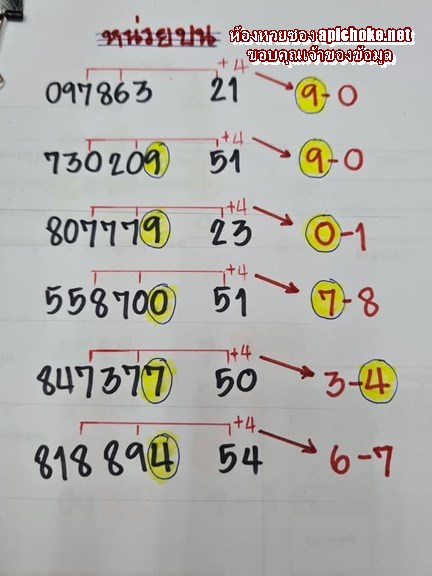 หน่วยบน ห้องหวยซอง apichoke.net
ขอบคุณเจ้าของข้อมูล
097863 21 +4 9-0
730209 51 +4 9-0
807779 23 +4 0-1
558700 51 +4 7-8
847377 50 +4 3-4
818894 54 +4 6-7